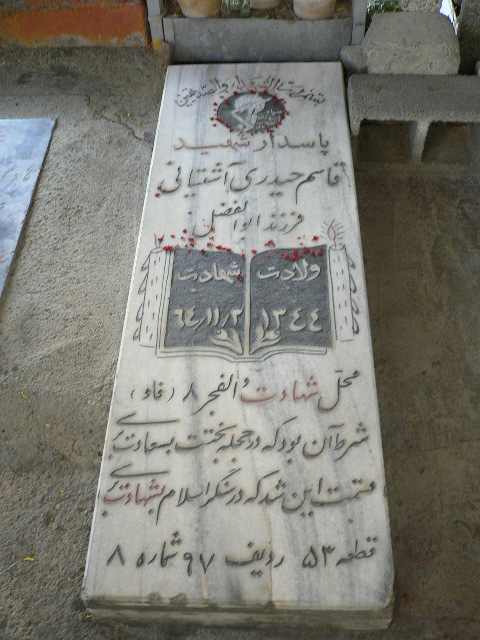 بنام رب الشهداء والصدیقین
پاسدار شهید
قاسم حیدری آشتیانی
فرزند ابوالفضل
ولادت
۱۳۴۴
شهادت
۶۴/۱۱/۲
محل شهادت والفجر ۸ (فاو)
شرط آن بود که در حجله بختت بسعادت ببرم
قسمت این شد که در سنگر اسلام بشهادت برم
قطعه ۵۳ ردیف ۹۷ شماره ۸